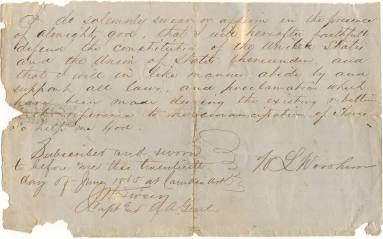 I do solemnly swear or affirm in the presence
of almighty god, that I will hereafter faithfully
defend the constitution of the United States
and the Union of States thereunder, and
that I will in like manner abide by and
support all laws and proclamation which
have been made during the existing rebellion
with reference to the emancipation of Slaves
So help me God.
Subscribed and sworn
to before me this twentieth
day of June 1865 at Camden Ark
W L
Capt &